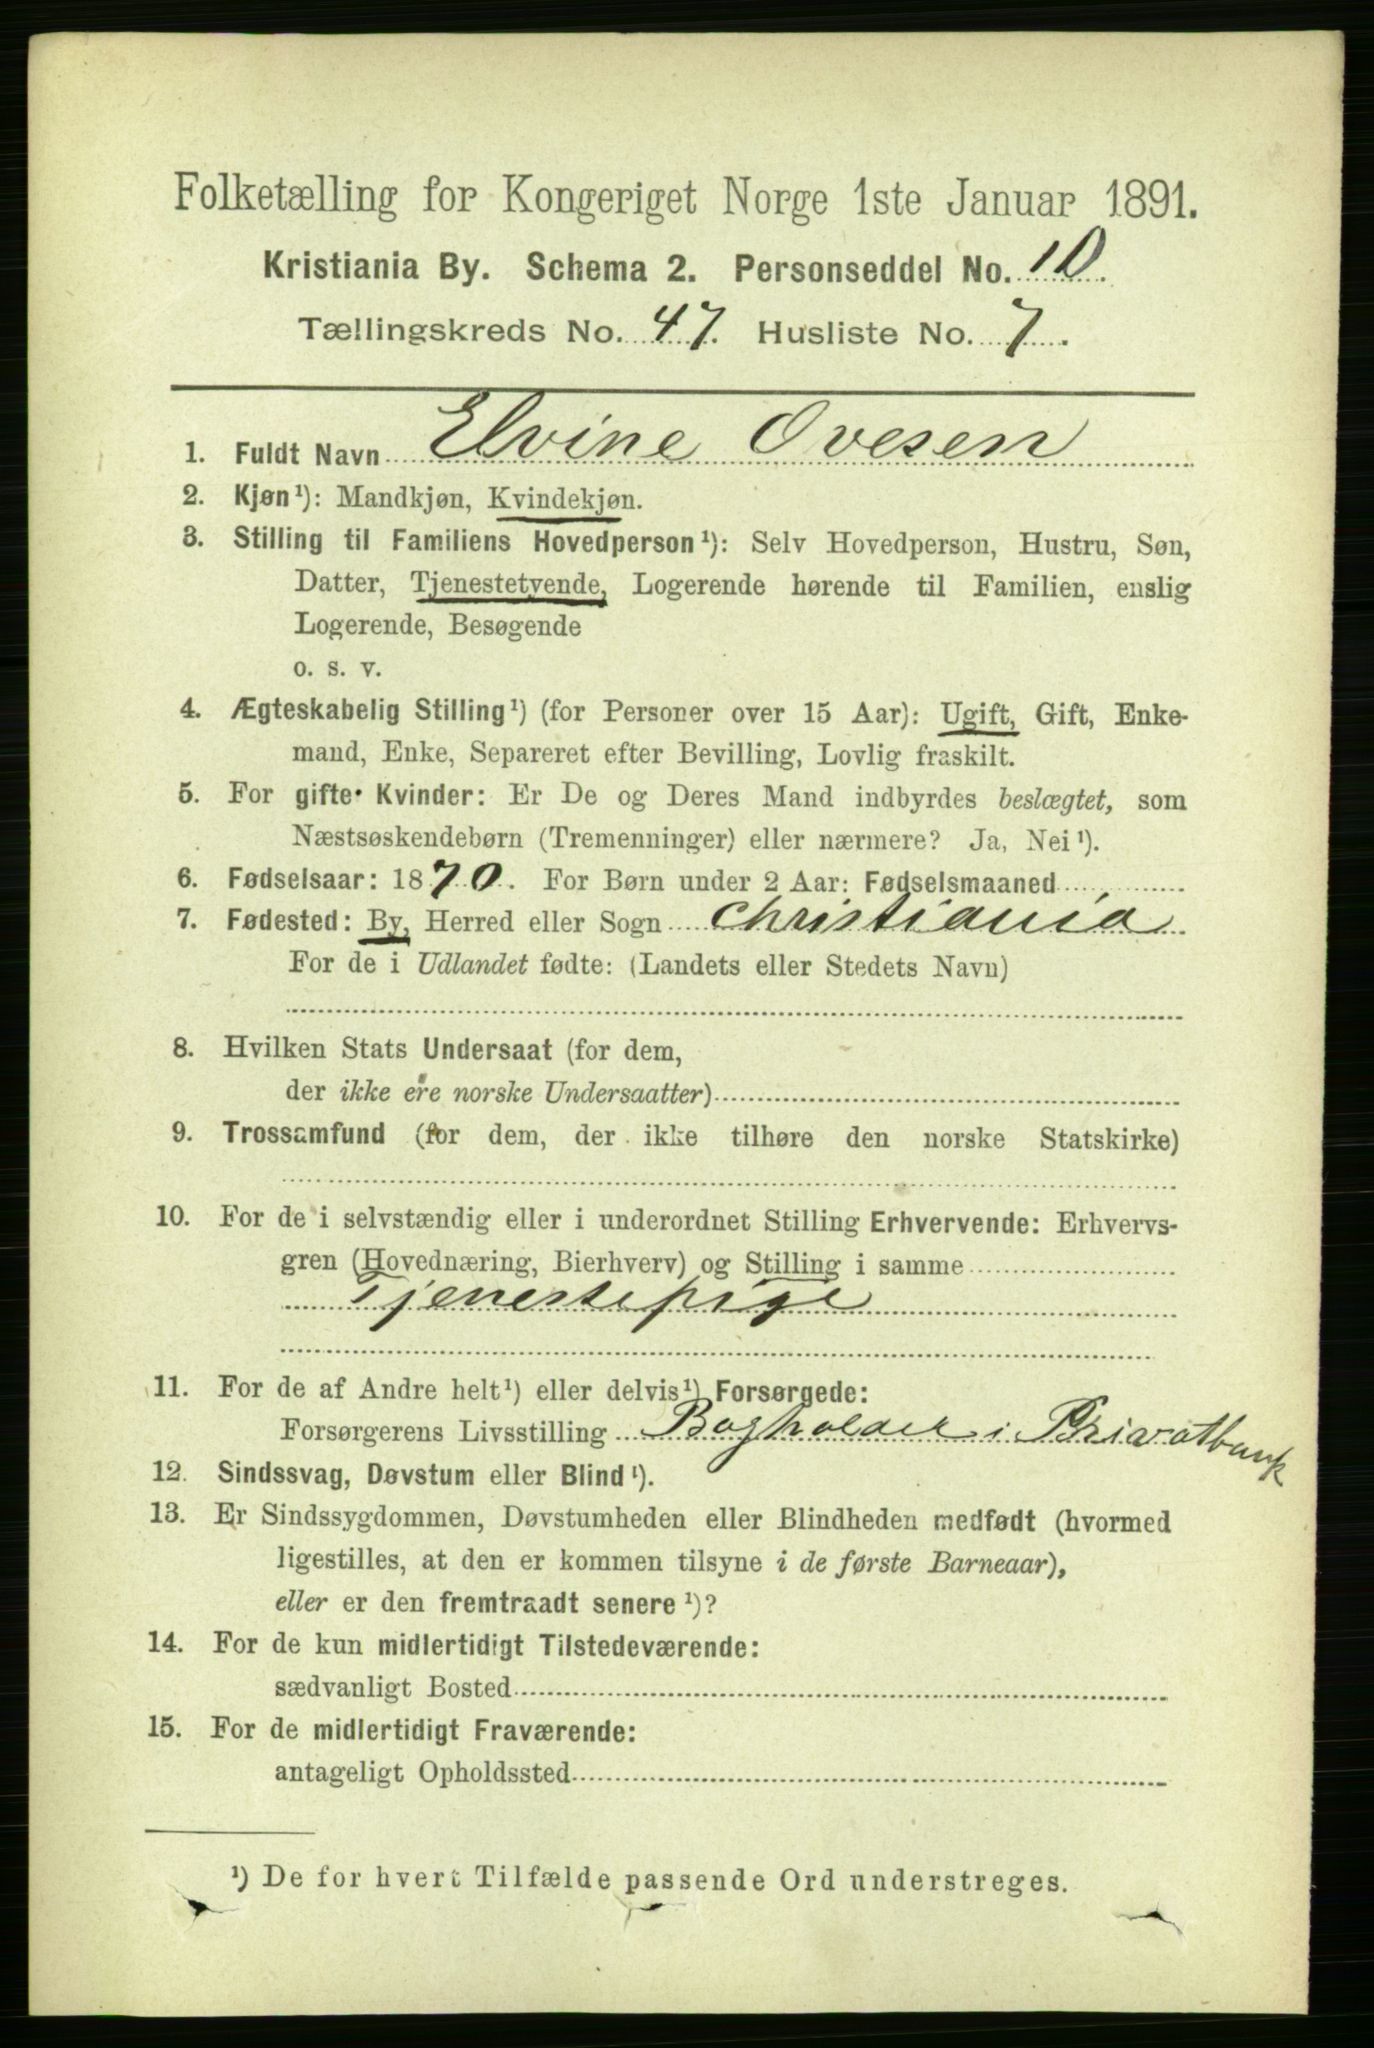 Folketælling for Kongeriget Norge 1ste Januar 1891.
Kristiania By. Schema 2. Personseddel No. 10.
Tællingskreds No. 47. Husliste No. 7.
1. Fuldt Navn Elvine Ovesen
2. Kjøn¹): Mandkjøn, Kvindekjøn.
3. Stilling til Familiens Hovedperson¹): Selv Hovedperson, Hustru, Søn,
Datter, Tjenestetyende, Logerende hørende til Familien, enslig
Logerende, Besøgende
o. s. v.
4. Ægteskabelig Stilling¹) (for Personer over 15 Aar): Ugift, Gift, Enke-
mand, Enke, Separeret efter Bevilling, Lovlig fraskilt.
5. For gifte Kvinder: Er De og Deres Mand indbyrdes beslægtet, som
Næstsøskendebørn (Tremenninger) eller nærmere? Ja, Nei¹).
6. Fødselsaar: 1870. For Børn under 2 Aar: Fødselsmaaned
7. Fødested: By, Herred eller Sogn Christiania
For de i Udlandet fødte: (Landets eller Stedets Navn)
8. Hvilken Stats Undersaat (for dem,
der ikke ere norske Undersaatter)
9. Trossamfund (for dem, der ikke tilhøre den norske Statskirke)
10. For de i selvstændig eller i underordnet Stilling Erhvervende: Erhvervs-
gren (Hovednæring, Bierhverv) og Stilling i samme
Tjenestepige
11. For de af Andre helt¹) eller delvis¹) Forsørgede:
Forsørgerens Livsstilling Bogholder i Privatbank
12. Sindssvag, Døvstum eller Blind¹).
13. Er Sindssygdommen, Døvstumheden eller Blindheden medfødt (hvormed
ligestilles, at den er kommen tilsyne i de første Barneaar),
eller er den fremtraadt senere¹)?
14. For de kun midlertidigt Tilstedeværende:
sædvanligt Bosted
15. For de midlertidigt Fraværende:
antageligt Opholdssted
¹) De for hvert Tilfælde passende Ord understreges.